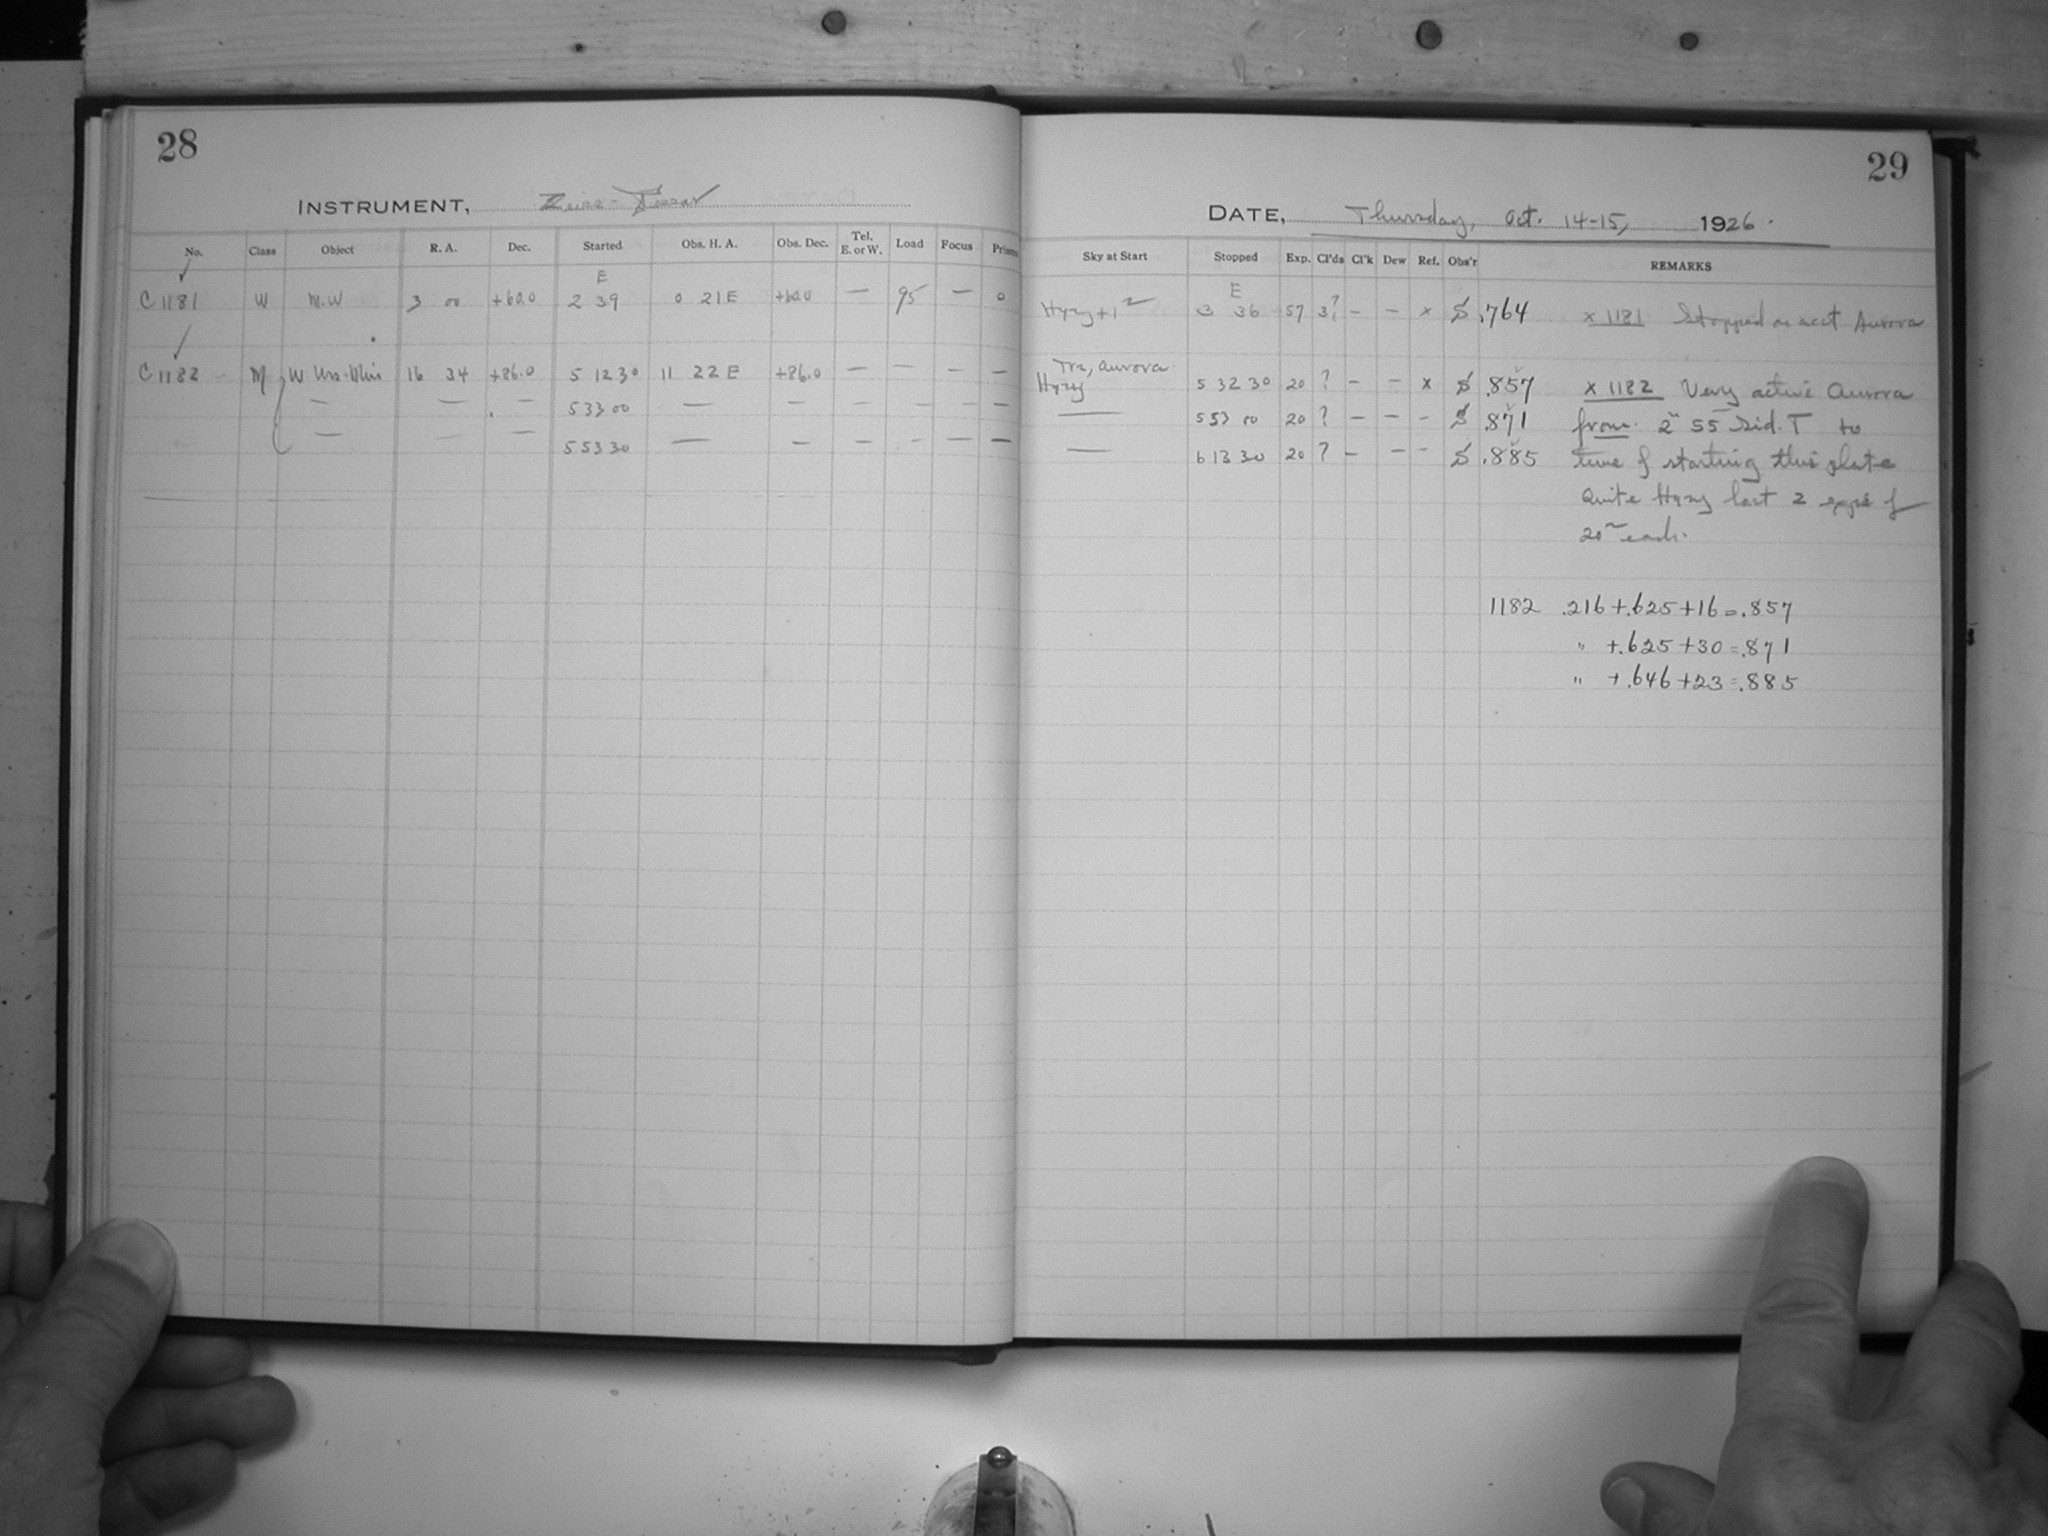 28
INSTRUMENT, Zeiss-Tessar
No. Class Object R. A. Dec. Started Obs. H. A. Obs. Dec. Tel. E. or W. Load Focus Prism
E
C1181 W M.W 3 00 +60.0 2 39 0 21 E +60.0 — 95 — 0
C1182 M W Urs. Min 16 34 +86.0 5 12 30 11 22 E +86.0 — — — —
— — — 5 33 00 — — — — — —
— — — 5 53 30 — — — — — —
29
DATE, Thursday, Oct. 14-15, 1926.
Sky at Start Stopped Exp. Cl'ds Cl'k Dew Ref. Obs'r REMARKS
E
Hazy +1 3 36 57 3? — — x S .764 x 1181 Stopped on acct Aurora
Trs, aurora
Hazy 5 32 30 20 ? — — x S .857 x 1182 Very active Aurora
— 5 53 00 20 ? — — - S .871 from 2 55 Sid. T to
— 6 13 30 20 ? — — - S .885 time of starting this plate
Quite Hazy last 2 exps of
20m each.
1182 .216+.625+16=.857
" +.625+30=.871
" +.646+23=.885